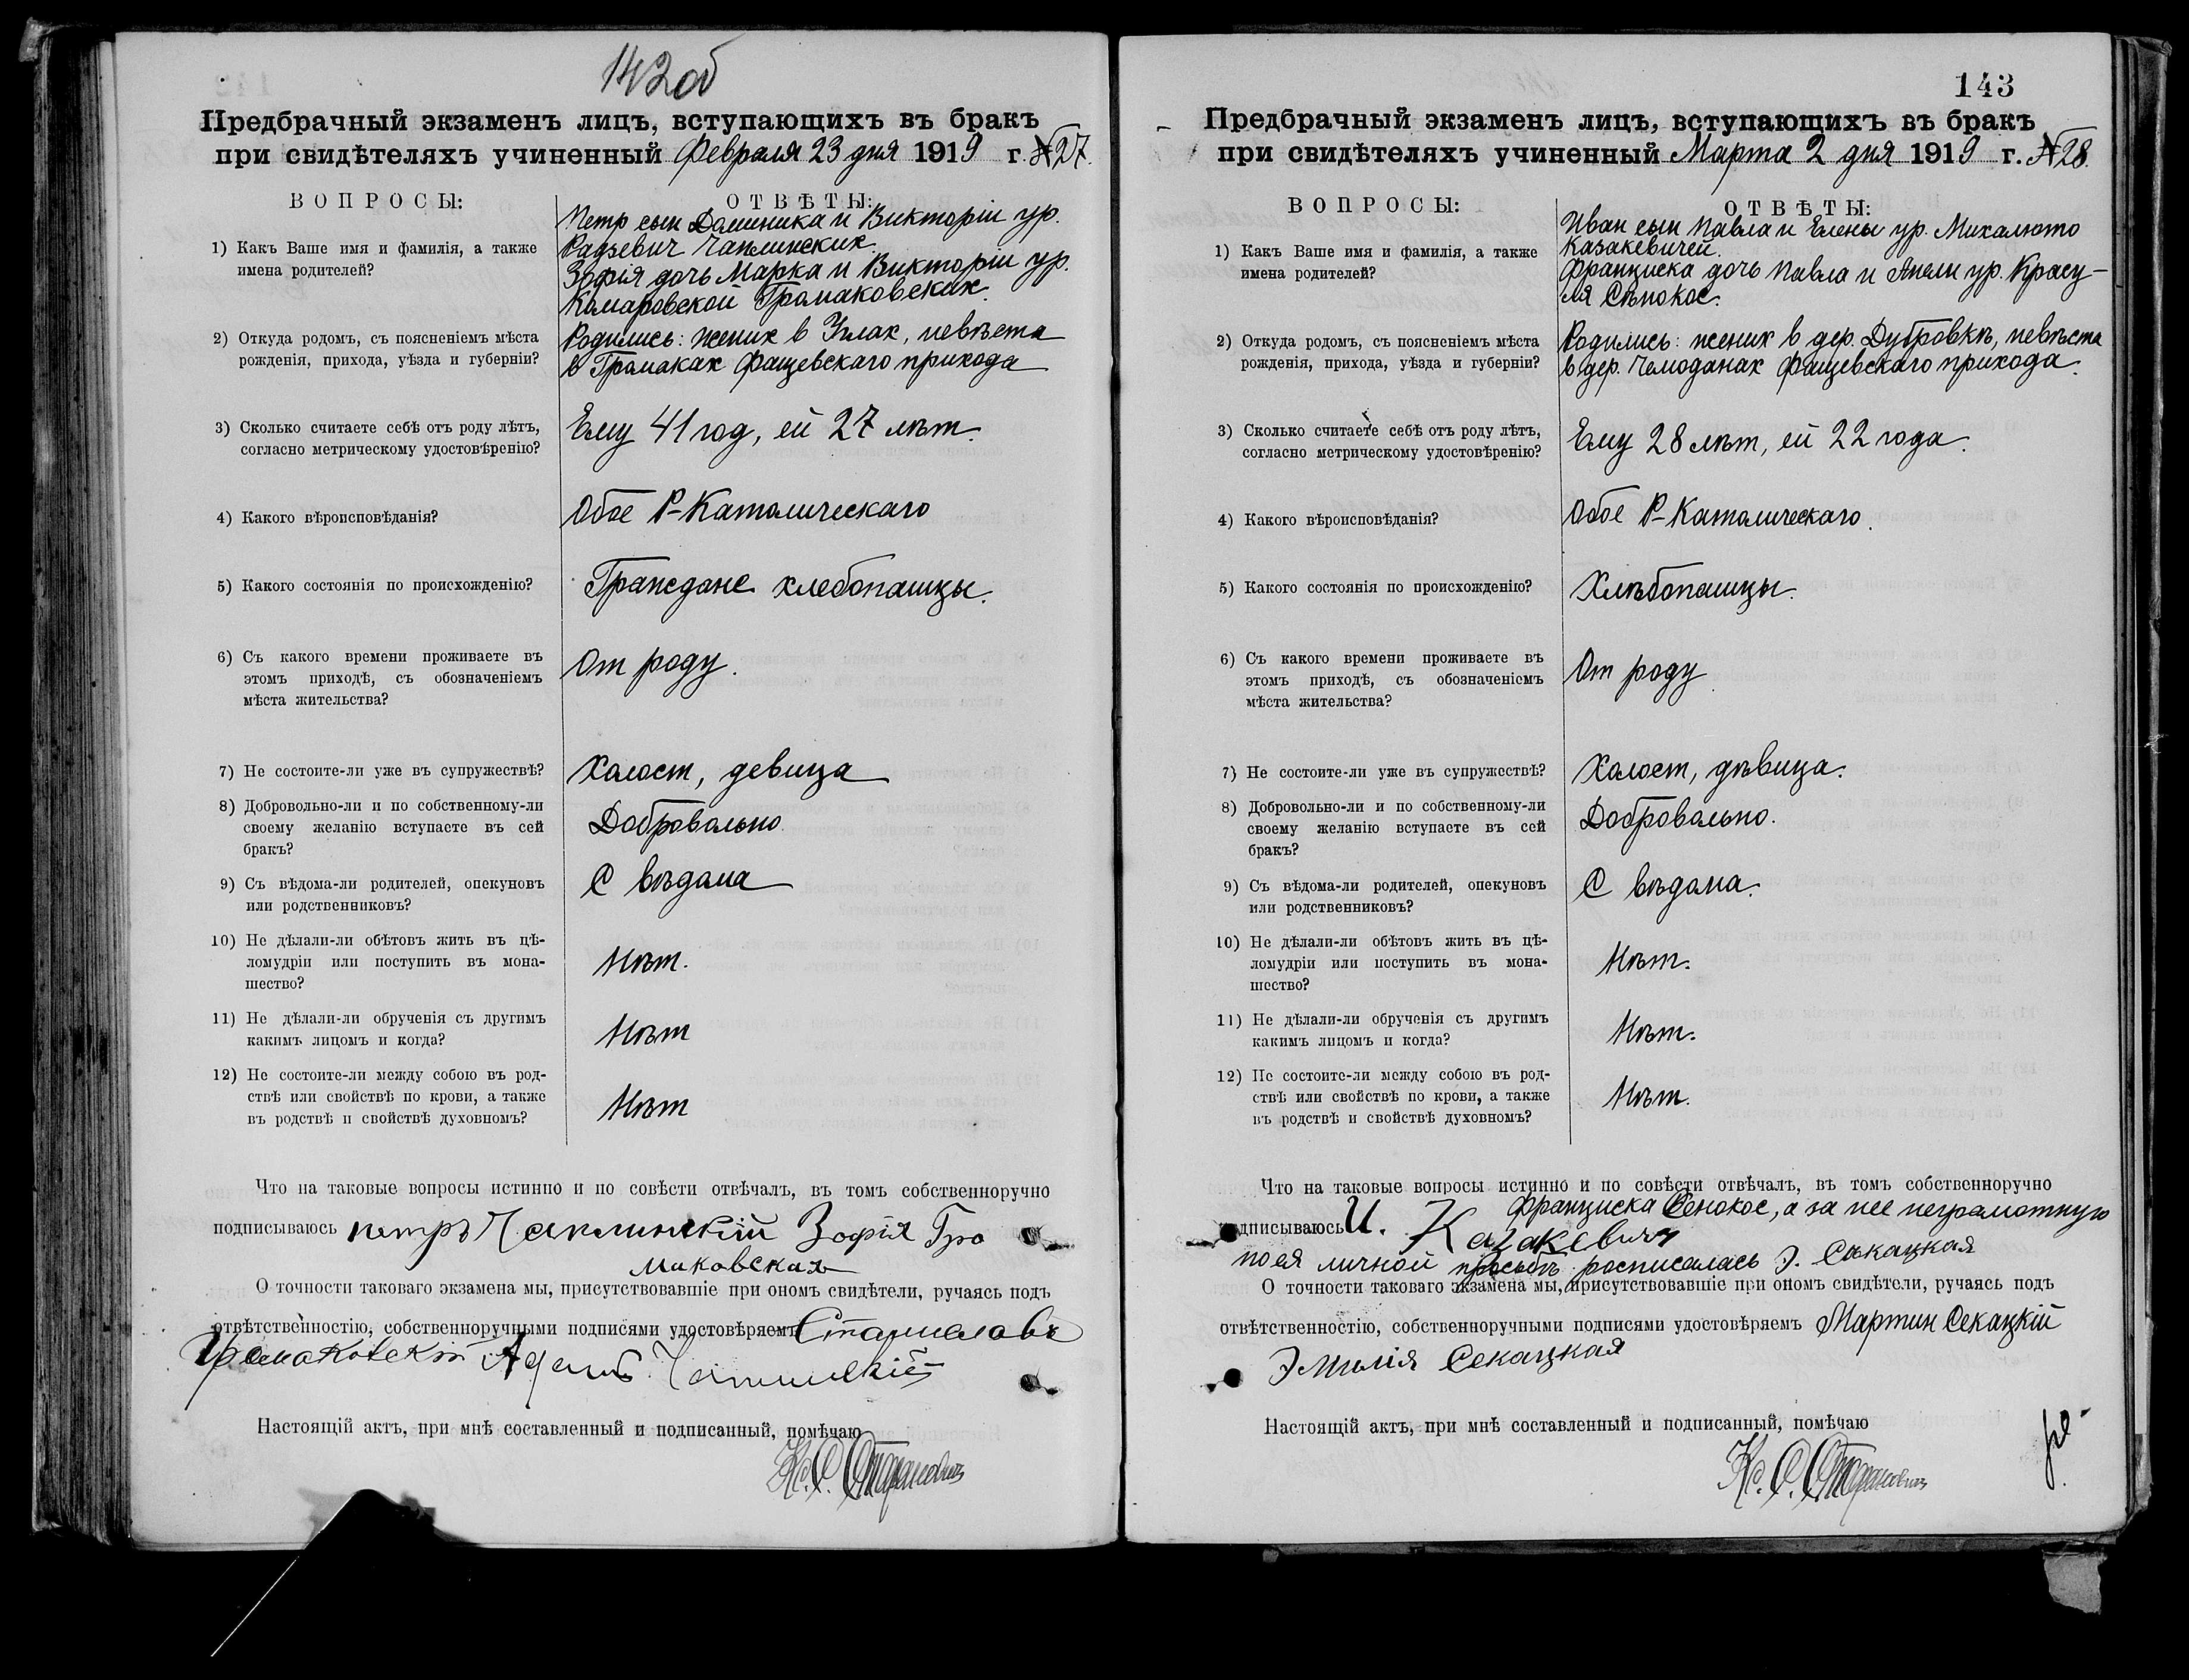 142об
Предбрачный экзаменъ лицъ, вступающихъ въ бракъ
при свидѣтеляхъ учиненный Февраля 23 дня 1919 г. №27.
ВОПРОСЫ:
ОТВѢТЫ:
1) Какъ Ваше имя и фамилія, а также
имена родителей?
Петр сын Доминика и Викторіи ур.
Радзевич Чаплинских.
Зофія дочь Марка и Викторіи ур.
Комаровской Громаковских.
2) Откуда родомъ, съ поясненіемъ мѣста
рожденія, прихода, уѣзда и губерніи?
Родились: жених в Углак, невѣста
в Громаках Фащевскаго прихода
3) Сколько считаете себѣ отъ роду лѣтъ,
согласно метрическому удостовѣренію?
Ему 41 год, ей 27 лѣт.
4) Какого вѣроисповѣданія?
Обое Р-Католическаго
5) Какого состоянія по происхожденію?
Граждане хлебопашцы.
6) Съ какого времени проживаете въ
этомъ приходѣ, съ обозначеніемъ
мѣста жительства?
От роду.
7) Не состоите-ли уже въ супружествѣ?
Холост, девица
8) Добровольно-ли и по собственному-ли
своему желанію вступаете въ сей
бракъ?
Добровольно.
9) Съ вѣдома-ли родителей, опекуновъ
или родственниковъ?
С вѣдома
10) Не дѣлали-ли обѣтовъ жить въ цѣ-
ломудріи или поступить въ мона-
шество?
Нѣт.
11) Не дѣлали-ли обрученія съ другимъ
какимъ лицомъ и когда?
Нѣт
12) Не состоите-ли между собою въ род-
ствѣ или свойствѣ по крови, а также
въ родствѣ и свойствѣ духовномъ?
Нѣт
Что на таковые вопросы истинно и по совѣсти отвѣчалъ, въ томъ собственноручно
подписываюсь петръ Чаплинскій Зофія Гро
маковская
О точности таковаго экзамена мы, присутствовавшіе при ономъ свидѣтели, ручаясь подъ
отвѣтственностію, собственноручными подписями удостовѣряемъ Станиславъ
Громаковскій Адамъ Чаплинскій
Настоящій актъ, при мнѣ составленный и подписанный, помѣчаю
Кс. С.
143
Предбрачный экзаменъ лицъ, вступающихъ въ бракъ
при свидѣтеляхъ учиненный Марта 2 дня 1919 г. №28.
ВОПРОСЫ:
ОТВѢТЫ:
1) Какъ Ваше имя и фамилія, а также
имена родителей?
Иван сын Павла и Елены ур. Михалюто
Казакевичей.
Франциска дочь Павла и Анели ур. Красу-
ля Сѣнокос.
2) Откуда родомъ, съ поясненіемъ мѣста
рожденія, прихода, уѣзда и губерніи?
Родились: жених в дер. Дубровкѣ, невѣста
в дер. Чемоданах Фащевскаго прихода.
3) Сколько считаете себѣ отъ роду лѣтъ,
согласно метрическому удостовѣренію?
Ему 28 лѣт, ей 22 года.
4) Какого вѣроисповѣданія?
Обое Р-Католическаго.
5) Какого состоянія по происхожденію?
Хлѣбопашцы.
6) Съ какого времени проживаете въ
этомъ приходѣ, съ обозначеніемъ
мѣста жительства?
От роду
7) Не состоите-ли уже въ супружествѣ?
Холост, дѣвица.
8) Добровольно-ли и по собственному-ли
своему желанію вступаете въ сей
бракъ?
Добровольно.
9) Съ вѣдома-ли родителей, опекуновъ
или родственниковъ?
С вѣдома.
10) Не дѣлали-ли обѣтовъ жить въ цѣ-
ломудріи или поступить въ мона-
шество?
Нѣт.
11) Не дѣлали-ли обрученія съ другимъ
какимъ лицомъ и когда?
Нѣт.
12) Не состоите-ли между собою въ род-
ствѣ или свойствѣ по крови, а также
въ родствѣ и свойствѣ духовномъ?
Нѣт.
Что на таковые вопросы истинно и по совѣсти отвѣчалъ, въ томъ собственноручно
подписываюсь И. Казакевичъ Франциска Сенокос, а за нее неграмотную
по ея личной просьбѣ росписалась Э. Секацкая
О точности таковаго экзамена мы, присутствовавшіе при ономъ свидѣтели, ручаясь подъ
отвѣтственностію, собственноручными подписями удостовѣряемъ Мартин Секацкій
Эмилія Секацкая
Настоящій актъ, при мнѣ составленный и подписанный, помѣчаю
Кс. С.